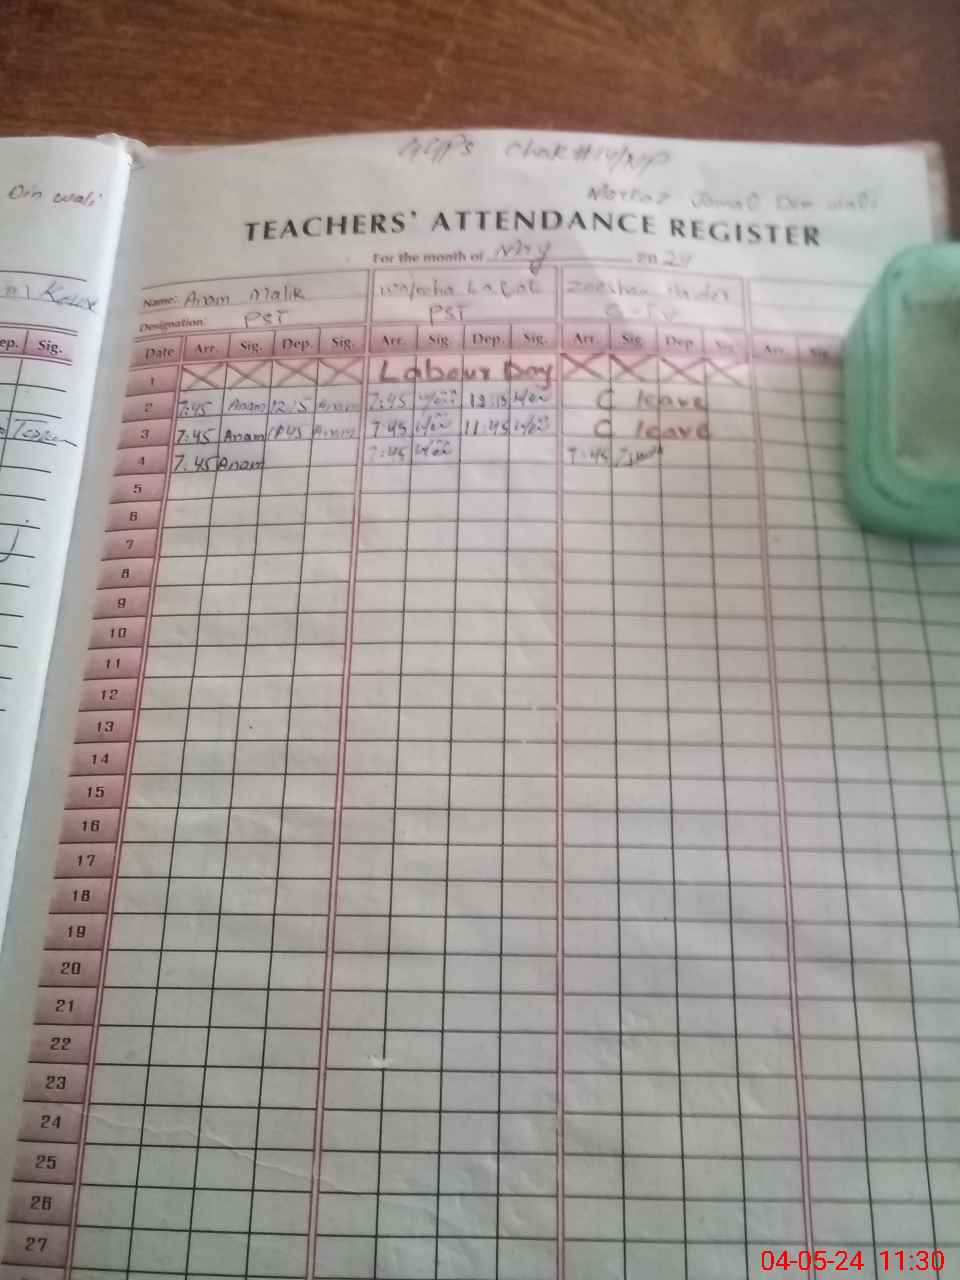 Din wali
GGPS Chak #14/NP
Markaz Jamal Din wali
TEACHERS' ATTENDANCE REGISTER
For the month of May 2024
Name: Anam Malik Zeeshan Haider
Designation: PST PST
ep. Sig. Date Arr. Sig. Dep. Sig. Arr. Sig. Dep. Sig. Arr. Sig. Dep. Sig. Arr. Sig.
1 Labour Day
2 7:45 Anam 12:15 Anam 7:45 12:15 C leave
3 7:45 Anam 11:45 Anam 7:45 11:45 C leave
4 7:45 Anam 7:45 7:45
5
6
7
8
9
10
11
12
13
14
15
16
17
18
19
20
21
22
23
24
25
26
27
04-05-24 11:30